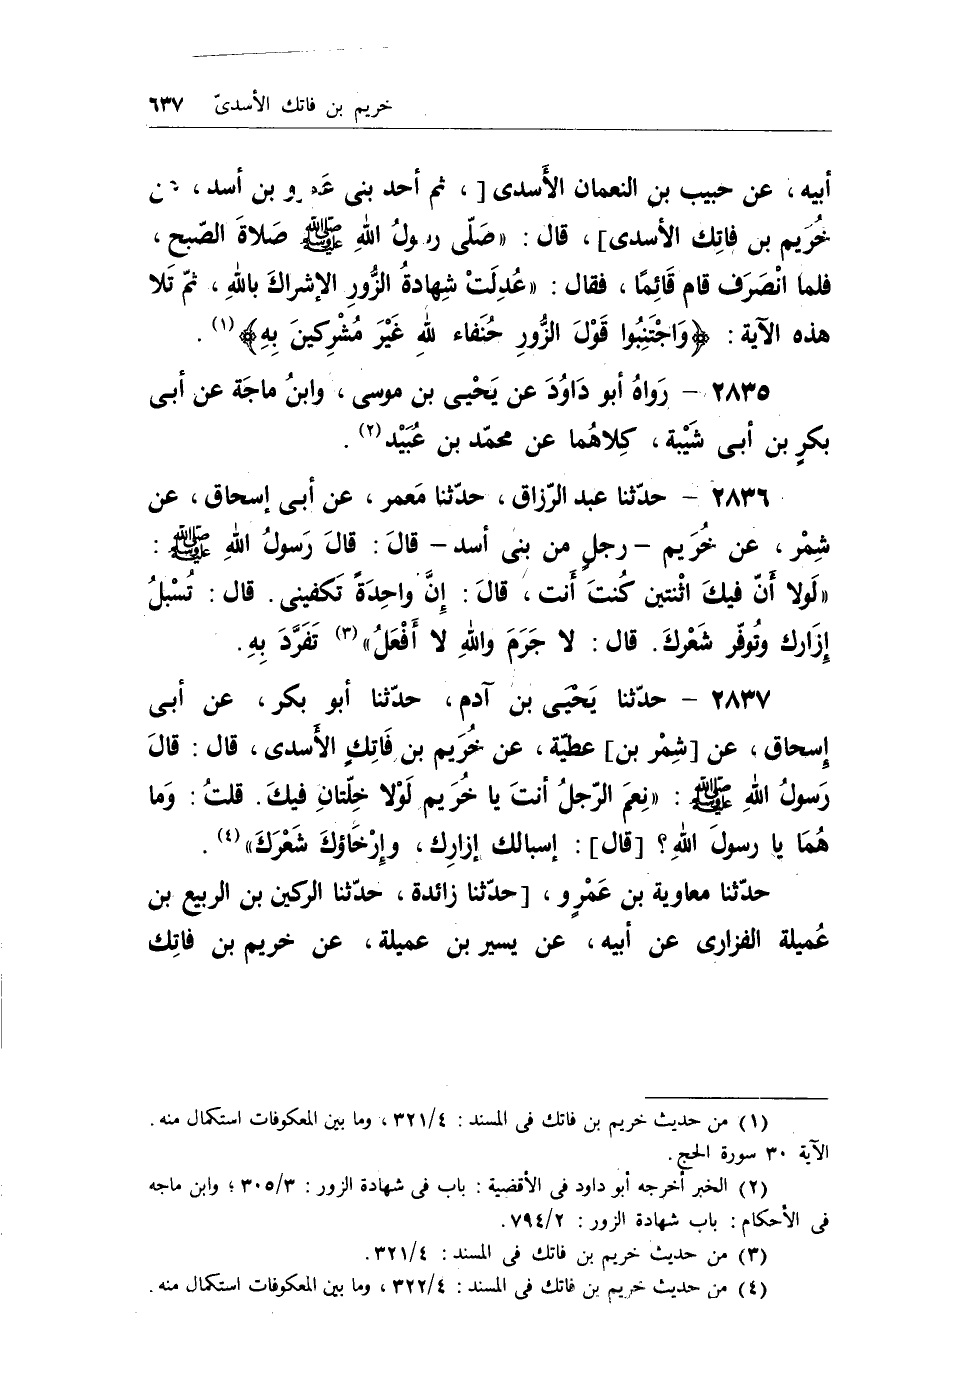 خريم بن فاتك الأسدىّ ٦٣٧
أبيه ، عن حبيب بن النعمان الأَسدى [ ، ثم أحد بنى بن أسد ،
خُرَيم بن فاتِك الأسدى] ، قال : «صَلّى رسولُ اللهِ ﷺ صَلاةَ الصّبح ،
فلما انْصَرَف قام قَائِمًا ، فقال : «عُدِلَتْ شهادةُ الزُّورِ الإشراكَ باللهِ ، ثمّ تَلا
هذه الآية : ﴿وَاجْتَنِبُوا قَوْلَ الزُّورِ حُنَفاء للهِ غَيْرَ مُشْرِكينَ بِهِ﴾(١) .
٢٨٣٥ – رَواهُ أبو دَاوُدَ عن يَحْيـى بن موسى ، وابنُ ماجَة عن أبـى
بكرٍ بن أبـى شَيْبة ، كِلاهُما عن محمّد بن عُبَيْد(٢) .
٢٨٣٦ – حدّثنا عبد الرّزاق ، حدّثنا مَعمر ، عن أبـى إسحاق ، عن
شِمْر ، عن خُرَيم – رجلٍ من بنى أسد – قالَ : قالَ رَسولُ اللهِ ﷺ :
«لَولا أَنّ فيكَ اثْنتين كُنتَ أَنت ، قالَ : إِنَّ واحِدَةً تَكفينى . قال : تُسْبلُ
إِزَارك وتُوفّر شَعْركَ . قال : لا جَرَمَ واللهِ لا أَفْعَلُ»(٣) تَفَرَّدَ بِهِ .
٢٨٣٧ – حدّثنا يَحْيَـى بن آدم ، حدّثنا أبو بكر ، عن أبـى
إسحاق ، عن [شِمْر بن] عطيّة ، عن خُرَيم بن فَاتِكٍ الأَسدى ، قال : قالَ
رَسولُ اللهِ ﷺ : «نِعمَ الرّجلُ أنتَ يا خُرَيم لَوْلا خلّتانِ فيكَ . قلتُ : وَما
هُمَا يا رسولَ اللهِ ؟ [قال] : إسبالك إزارِك ، وإرْخاؤكَ شَعْرَكَ»(٤) .
حدّثنا معاوية بن عَمْرٍو ، [حدّثنا زائدة ، حدّثنا الركين بن الربيع بن
عُميلة الفزارى عن أبيه ، عن يسير بن عميلة ، عن خريم بن فاتِك
(١) من حديث خريم بن فاتك فى المسند : ٣٢١/٤ ، وما بين المعكوفات استكمال منه .
الآية ٣٠ سورة الحج .
(٢) الخبر أخرجه أبو داود فى الأقضية : باب فى شهادة الزور : ٣٠٥/٣ ؛ وابن ماجه
فى الأحكام : باب شهادة الزور : ٧٩٤/٢ .
(٣) من حديث خريم بن فاتك فى المسند : ٣٢١/٤ .
(٤) من حديث خريم بن فاتك فى المسند : ٣٢٢/٤ ، وما بين المعكوفات استكمال منه .